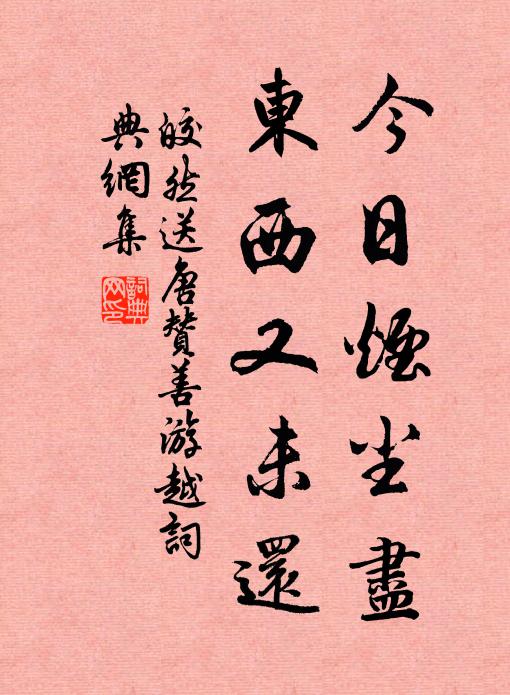 今日煙尘盡
東西又未還
皎然送唐贊善游越詞
典網集
詞典
网印